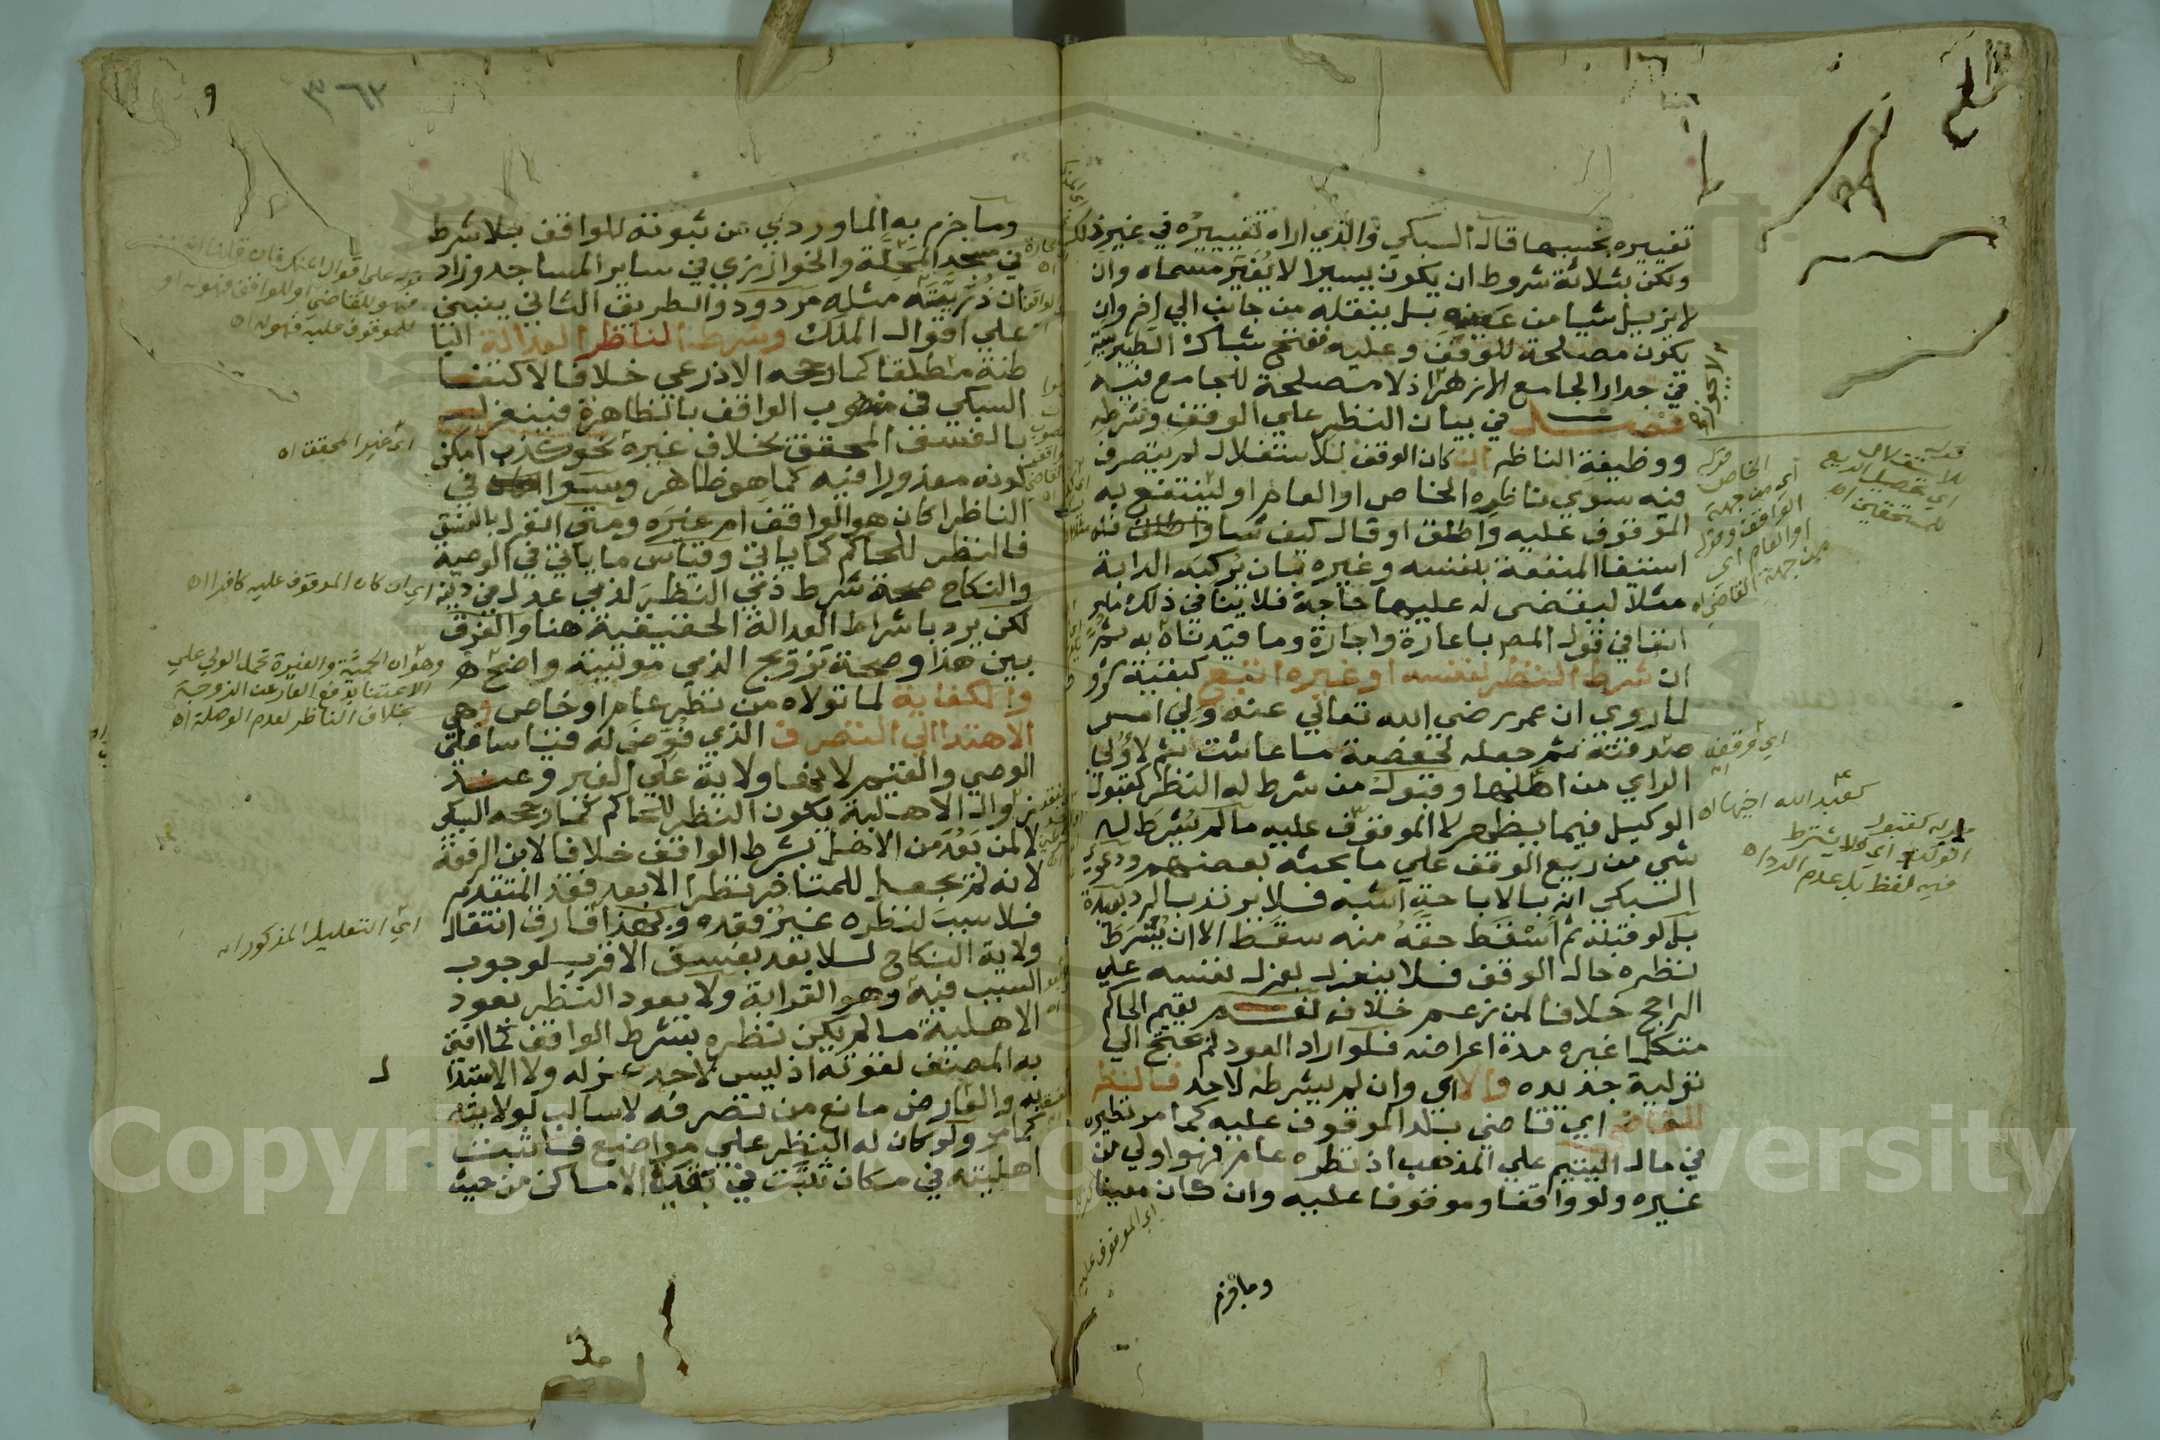 تغييره بحسبها قال السبكي والذي اراه تغييره في غير ذلك
ولكن بثلاثة شروط ان يكون يسيرا لا يغير مسماه وان
لا يزيل شيا من عينه بل ينقله من جانب الي اخر وان
يكون مصلحة للوقف وعليه ففتح شباك الطيبرسية
في جدار الجامع الازهر اذ لا مصلحة للجامع فيه
فصل في بيان النظر علي الوقف وشرطه
ووظيفة الناظر ان كان الوقف للاستغلال لم يتصرف
فيه سوي ناظره الخاص او العام او لينتفع به
الموقوف عليه واطلق او قال كيف شا فله
استيفا المنفعة بنفسه وغيره بان يركبه الدابة
مثلا ليقضي له عليها حاجة فلا ينافي ذلك ما مر
انفا في قول المص باعارة واجارة وما قيدناه به ثم
ان شرط النظر لنفسه او غيره اتبع كبقية شروطه
لما روي ان عمر رضي الله تعالي عنه ولي امر
صدقته ثم جعله لحفصة ما عاشت ثم لاولي
الراي من اهلها وقبول من شرط له النظر كقبول
الوكيل فيما يظهر لا الموقوف عليه ما لم يشرط له
شي من ريع الوقف علي ما بحثه بعضهم ودعوي
السبكي انه بالاباحة اشبه فلا يرتد بالرد بعيدة
بل لو قبله ثم اسقط حقه منه سقط الا ان يشرط
نظره حال الوقف فلا ينعزل بعزل نفسه علي
الراجح خلافا لمن زعم خلافه نعم يقيم الحاكم
متكلما غيره مدة اعراضه فلو اراد العود لم يحتج الي
تولية جديده والا اي وان لم يشرطه لاحد فالنظر
للقاضي اي قاضي بلد الموقوف عليه كما مر نظيره
في مال اليتيم علي المذهب اذ نظره عام فهو اولي من
غيره ولو واقفا وموقوفا عليه وان كان معينا
قوله الخاص
اي من جهة
الواقف وقوله
او العام اي
من جهة القاضي اه
قوله للاستغلال
اي تحصيل الريع
للمستحقين اه
كعبد الله اخيها اه
قوله كقبول
الوكيل اي ولا يشترط
فيه لفظ بل عدم الرد اه
اي الموقوف عليه
وما جزم
وما جزم به الماوردي من ثبوته للواقف بلا شرط
في مسجد المحلة والخوارزمي في ساير المساجد وزاد
ان ذريته مثله مردود والطريق الثاني ينبني
علي اقوال الملك وشرط الناظر العدالة البا
طنة مطلقا كما رجحه الاذرعي خلافا لاكتفا
السبكي في منصوب الواقف بالظاهرة فينعزل
بالفسق المحقق بخلاف غيره نحو كذب امكن
كونه معذورا فيه كما هو ظاهر وسوا في
الناظر اكان هو الواقف ام غيره ومتي انعزل بالفسق
فالنظر للحاكم كما ياتي وقياس ما ياتي في الوصية
والنكاح صحة شرط ذمي النظر لذمي عدل في دينه
لكن يرد باشتراط العدالة الحقيقية هنا والفرق
بين هذا وصحة تزويج الذمي موليته واضح
والكفاية لما تولاه من نظر عام او خاص وهي
الاهتدا الي التصرف الذي فوض له قياسا علي
الوصي والقيم لانها ولاية علي الغير وعند
زوال الاهلية يكون النظر للحاكم كما رجحه السبكي
لا لمن بعد من الاهل بشرط الواقف خلافا لابن الرفعة
لانه لم يجعل للمتاخر نظرا الا بعد فقد المتقدم
فلا سبب لنظره غير فقده وبهذا فارق انتقال
ولاية النكاح للابعد بفسق الاقرب لوجوب
السبب فيه وهو القرابة ولا يعود النظر بعود
الاهلية ما لم يكن نظره بشرط الواقف كما افتي
به المصنف لقوته اذ ليس لاحد عزله ولا الاستبدا
به والعارض مانع من تصرفه لا سالب لولايته
كما مر ولو كان له النظر علي مواضع فاثبت
اهليته في مكان ثبتت في بقية الاماكن من حيث
اي غير المحقق اه
اي ان كان الموقوف عليه كافرا اه
وهو ان الحمية والغيرة تحمل الولي علي
الاعتنا بدفع العار عن الزوجة
بخلاف الناظر لعدم الوصلة اه
اي التعليل المذكور اه
٩
Copyright King Saud University